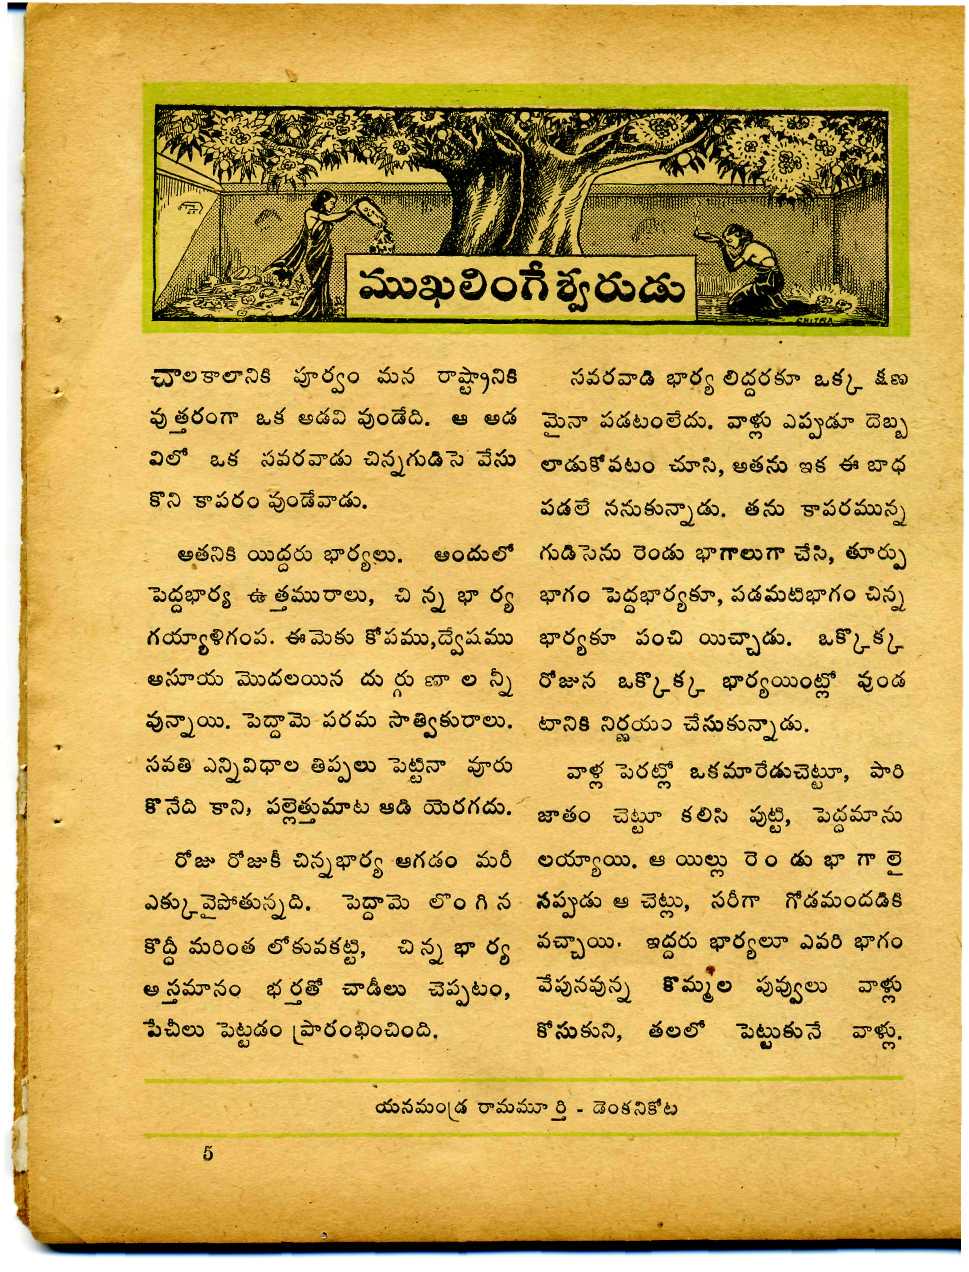 ముఖలింగేశ్వరుడు
CHITRA
చాలకాలానికి పూర్వం మన రాష్ట్రానికి
వుత్తరంగా ఒక అడవి వుండేది. ఆ అడ
విలో ఒక సవరవాడు చిన్నగుడిసె వేసు
కొని కాపరం వుండేవాడు.
అతనికి యిద్దరు భార్యలు. అందులో
పెద్దభార్య ఉత్తమురాలు, చిన్న భార్య
గయ్యాళిగంప. ఈమెకు కోపము,ద్వేషము
అసూయ మొదలయిన దుర్గుణాలన్నీ
వున్నాయి. పెద్దామె పరమ సాత్వికురాలు.
సవతి ఎన్నివిధాల తిప్పలు పెట్టినా వూరు
కొనేది కాని, పల్లెత్తుమాట ఆడి యెరగదు.
రోజు రోజుకీ చిన్నభార్య ఆగడం మరీ
ఎక్కువైపోతున్నది. పెద్దామె లొంగిన
కొద్దీ మరింత లోకువకట్టి, చిన్న భార్య
అస్తమానం భర్తతో చాడీలు చెప్పటం,
పేచీలు పెట్టడం ప్రారంభించింది.
సవరవాడి భార్య లిద్దరకూ ఒక్క క్షణ
మైనా పడటంలేదు. వాళ్లు ఎప్పుడూ దెబ్బ
లాడుకోవటం చూసి, అతను ఇక ఈ బాధ
పడలే ననుకున్నాడు. తను కాపరమున్న
గుడిసెను రెండు భాగాలుగా చేసి, తూర్పు
భాగం పెద్దభార్యకూ, పడమటిభాగం చిన్న
భార్యకూ పంచి యిచ్చాడు. ఒక్కొక్క
రోజున ఒక్కొక్క భార్యయింట్లో వుండ
టానికి నిర్ణయం చేసుకున్నాడు.
వాళ్ల పెరట్లో ఒకమారేడుచెట్టూ, పారి
జాతం చెట్టూ కలిసి పుట్టి, పెద్దమాను
లయ్యాయి. ఆ యిల్లు రెండు భాగాలై
నప్పుడు ఆ చెట్లు, సరీగా గోడమందడికి
వచ్చాయి. ఇద్దరు భార్యలూ ఎవరి భాగం
వేపునవున్న కొమ్మల పువ్వులు వాళ్లు
కోసుకుని, తలలో పెట్టుకునే వాళ్లు.
యనమండ్ర రామమూర్తి - డెంకనికోట
5